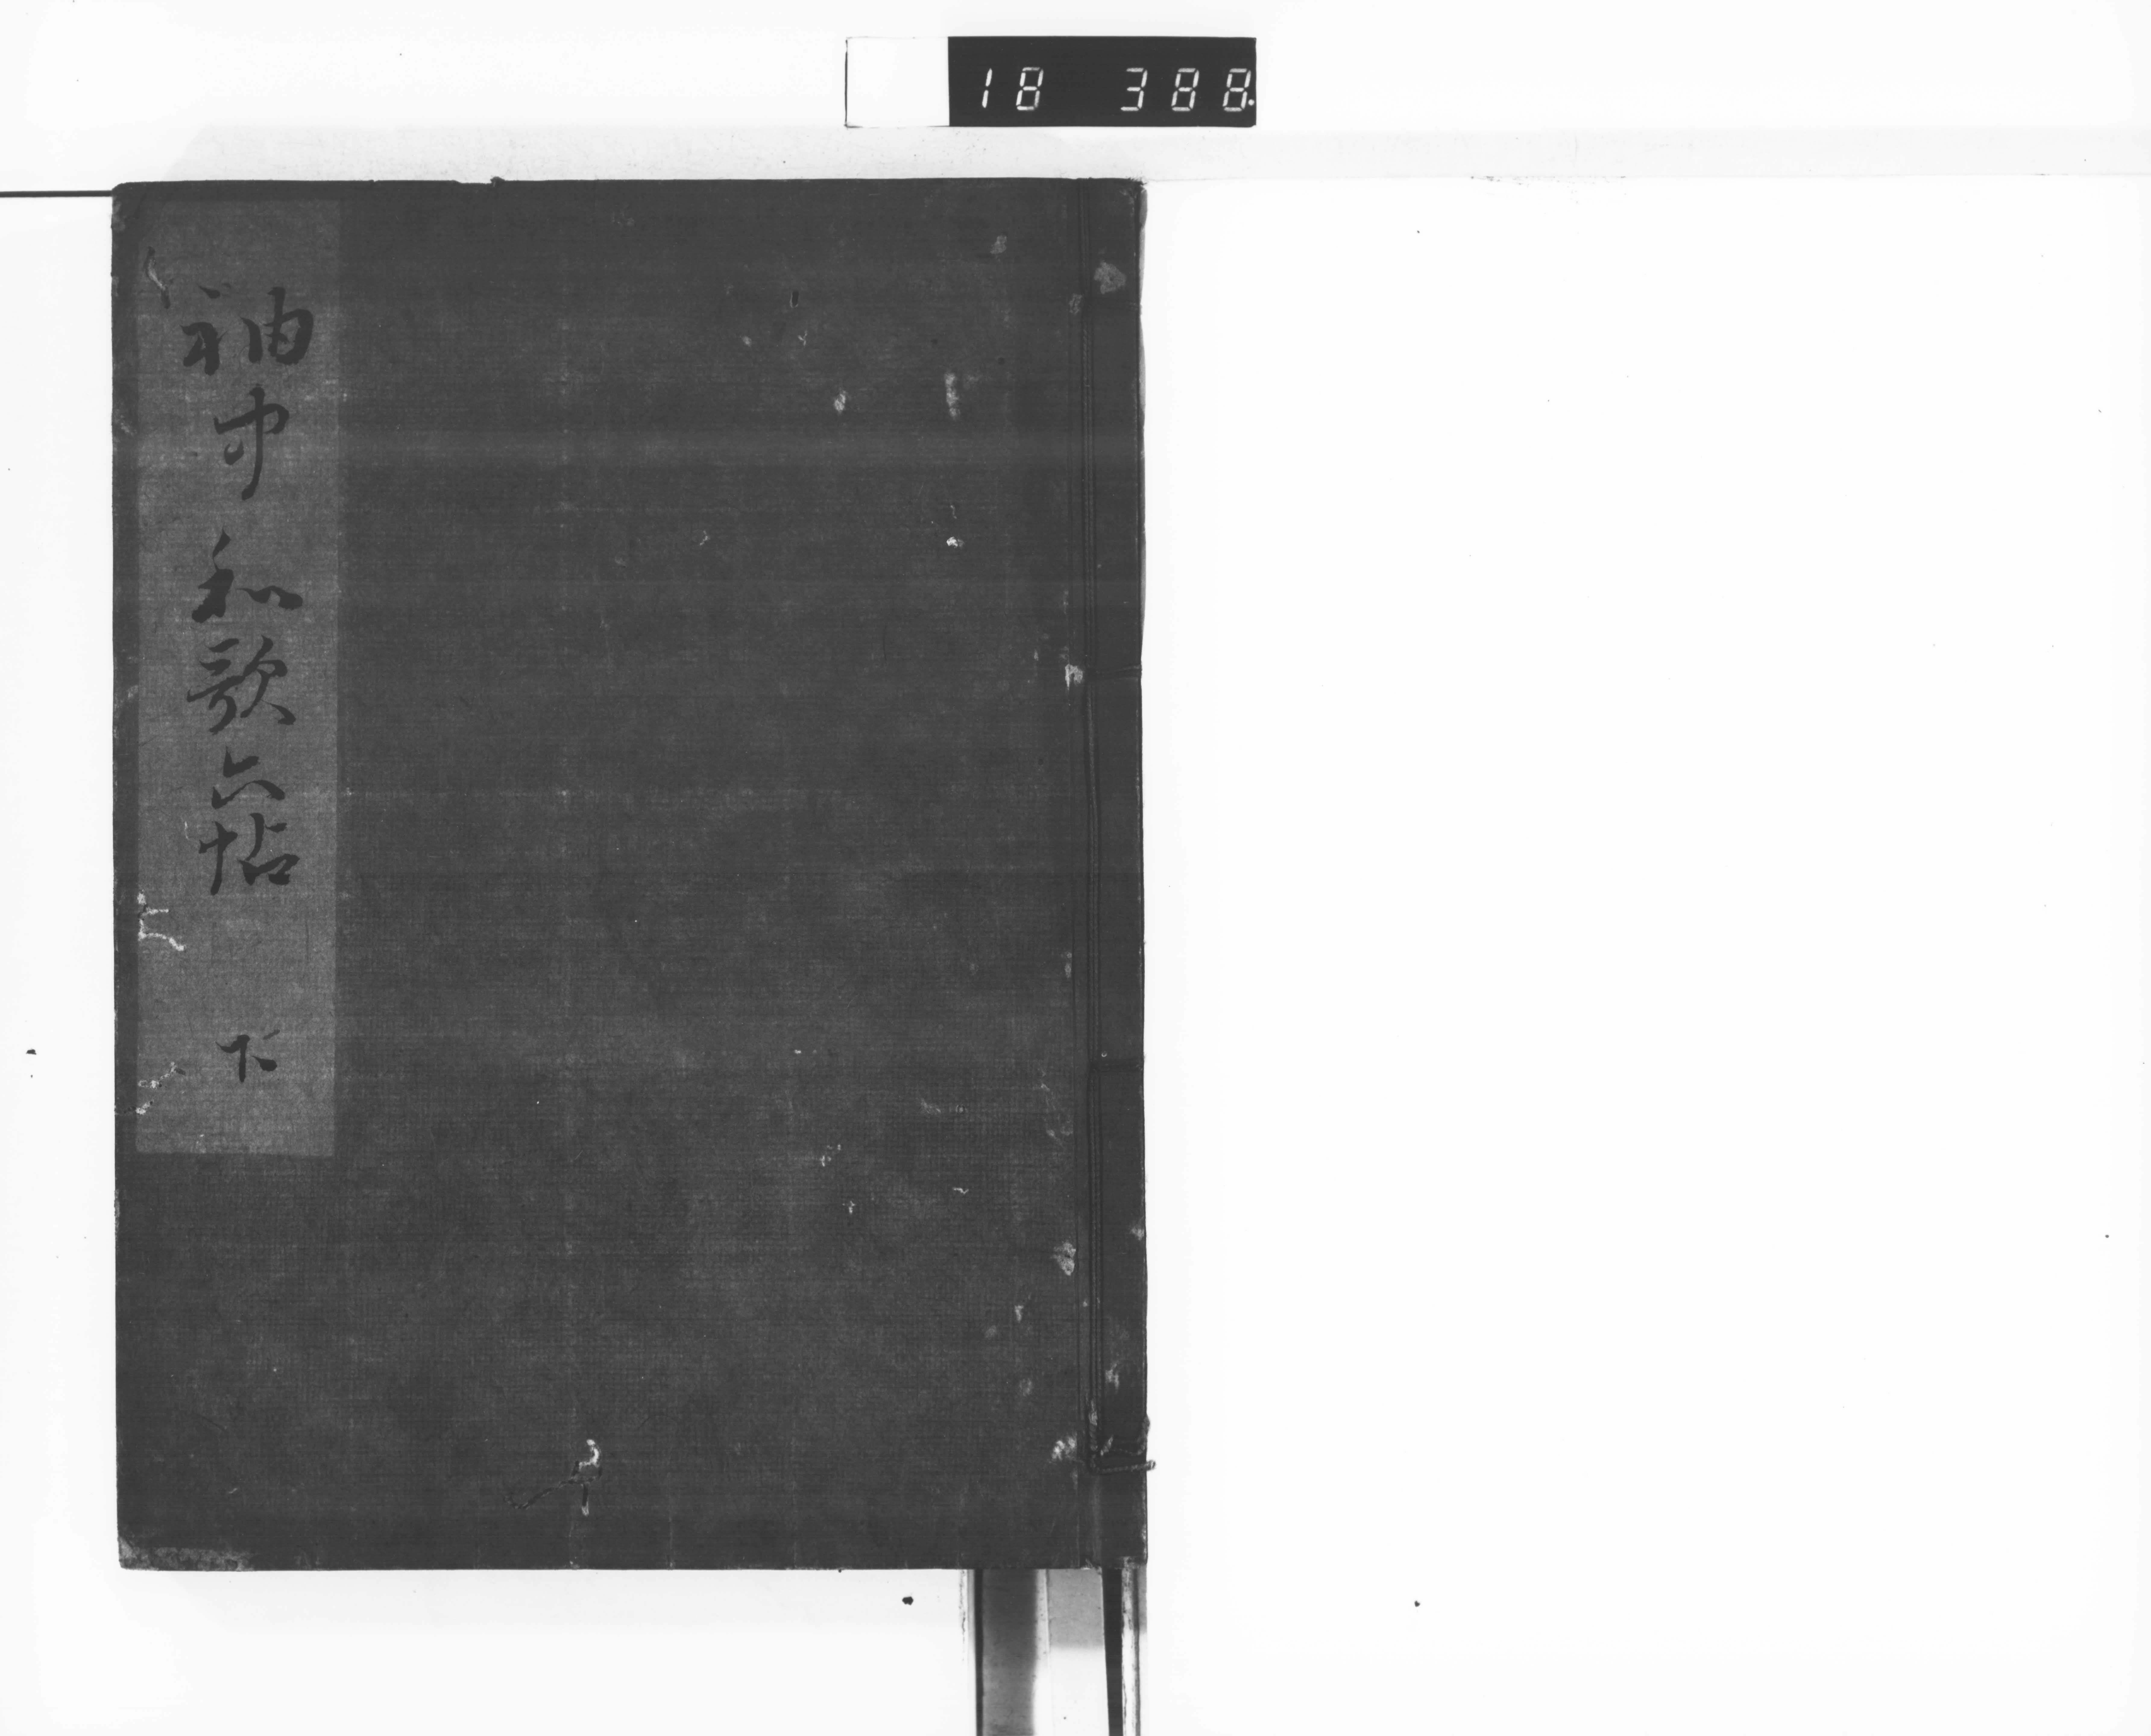 18 388
袖中和歌六帖 下